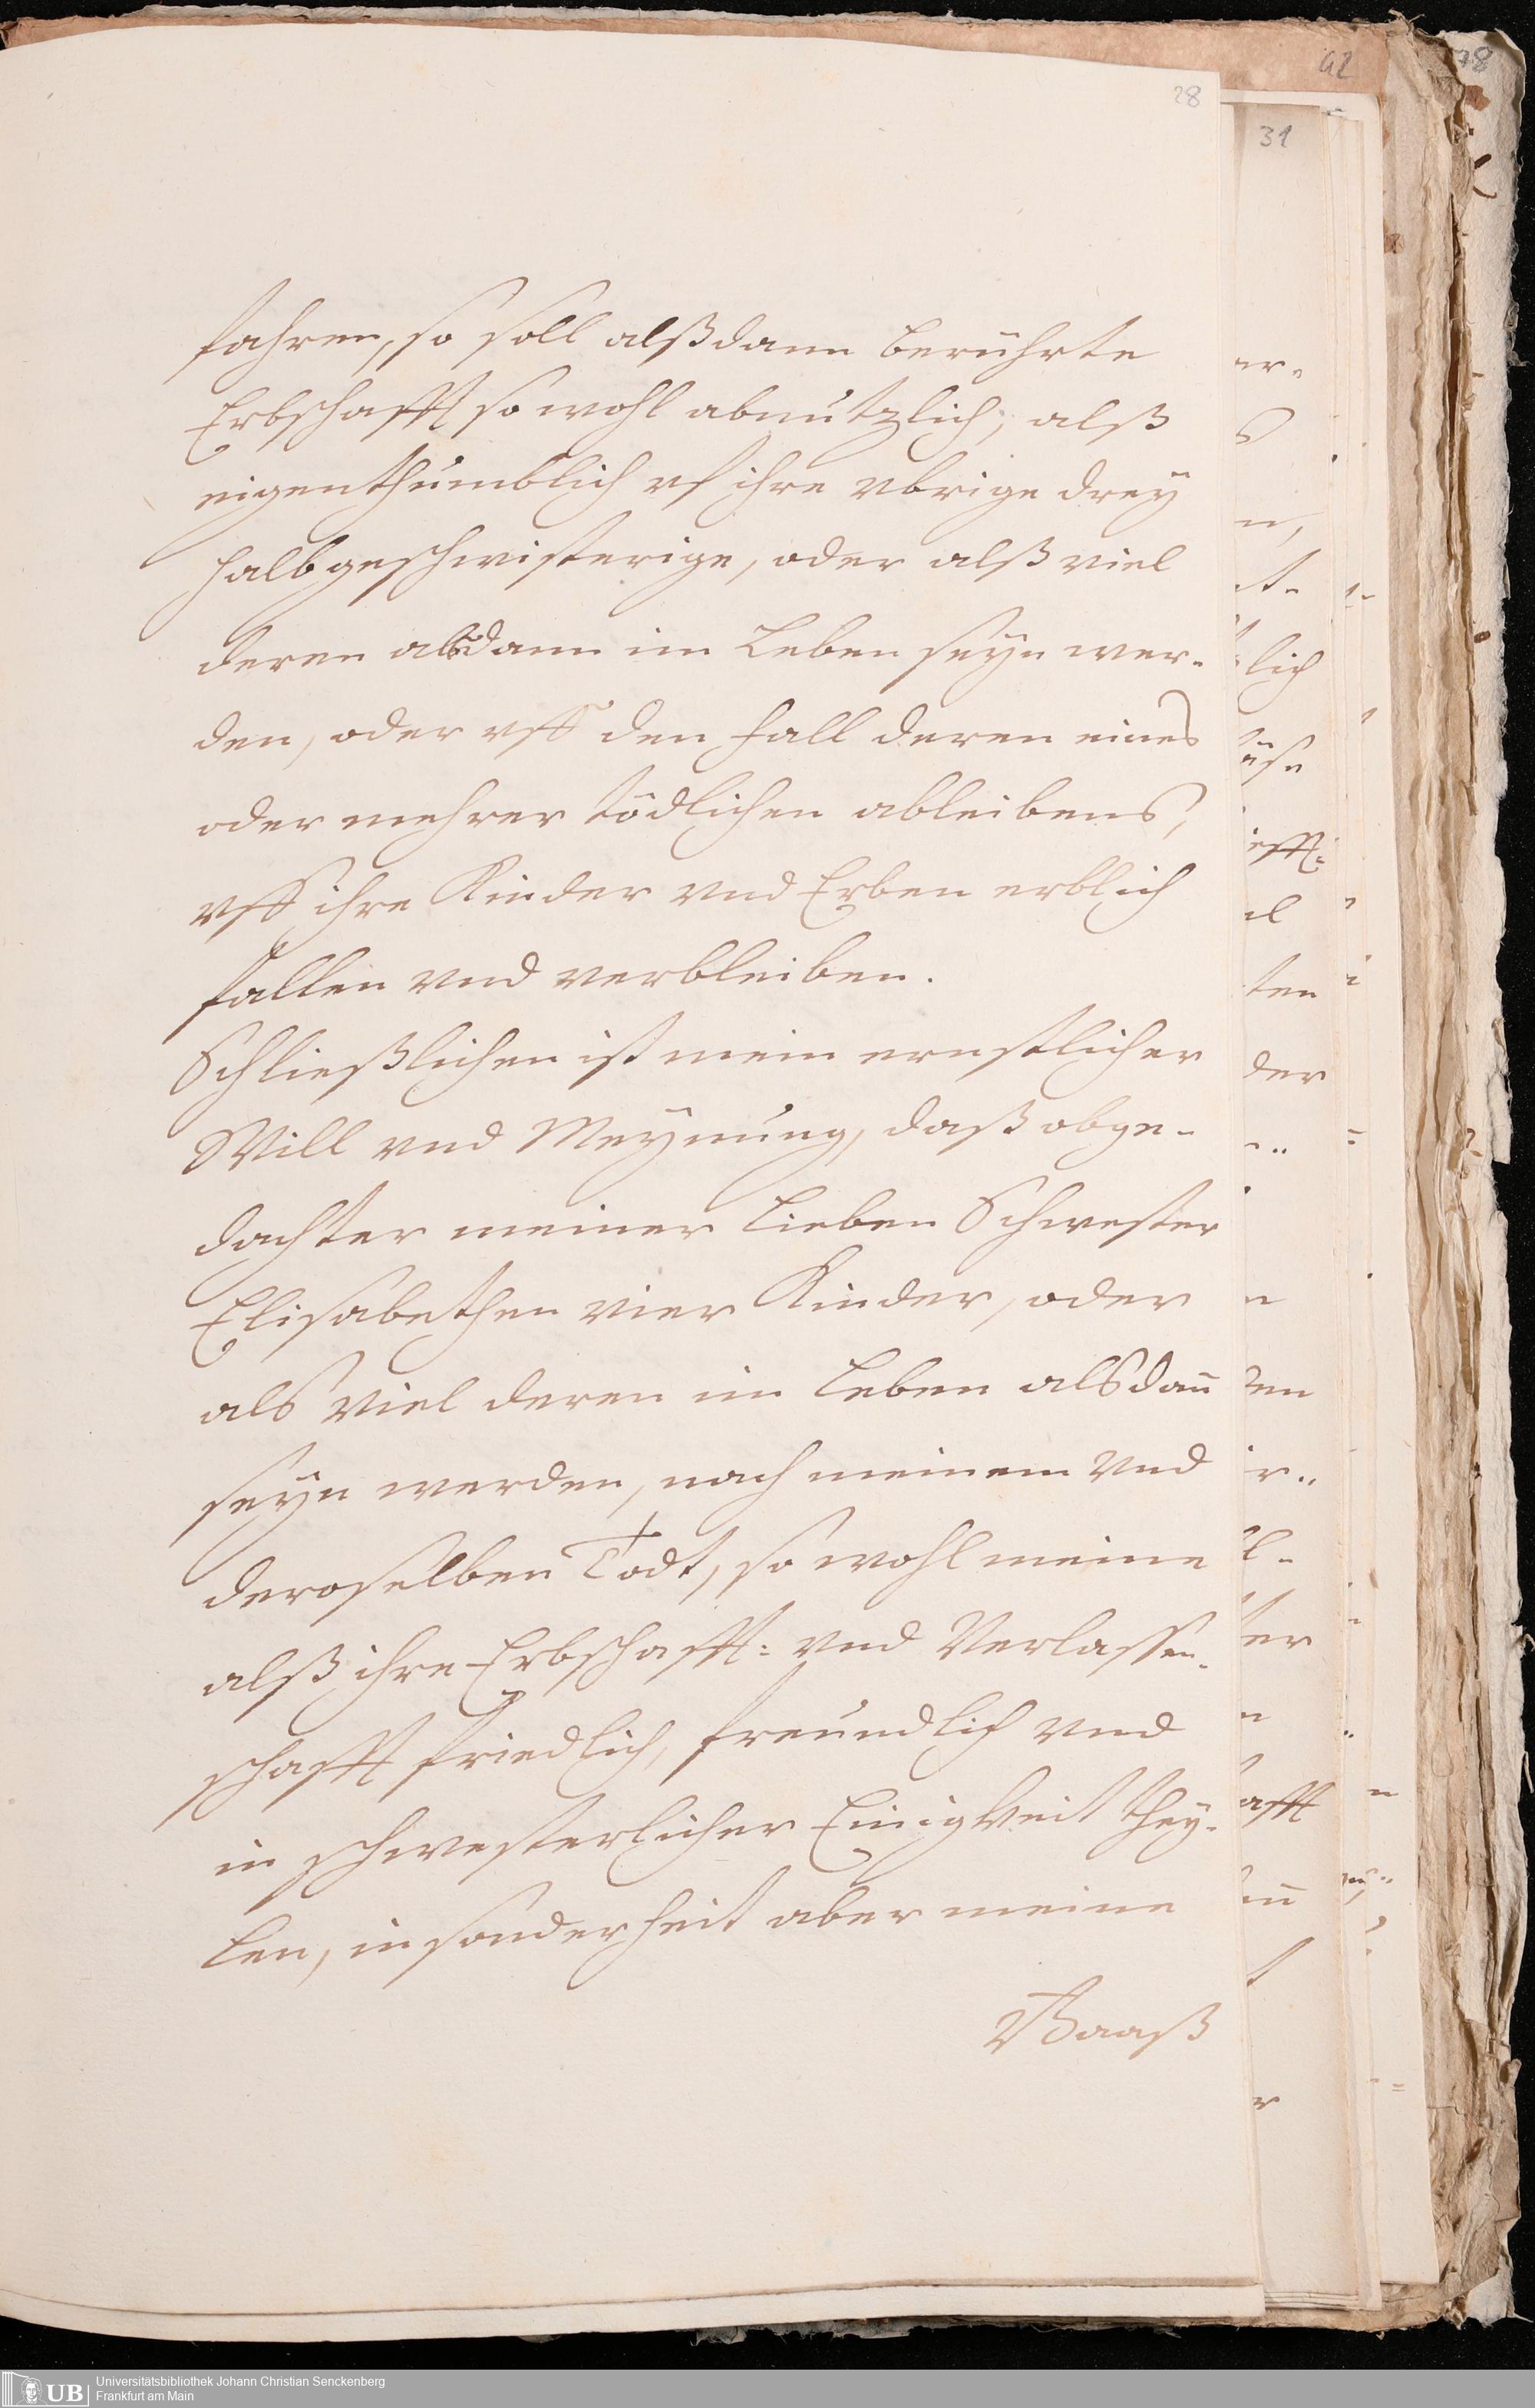 28
42
78
31
fahren, so soll alßdann berührte
Erbschafft so wohl abnutzlich, alß
eigenthumblich vf ihre vbrige drey
halbgeschwisterige, oder alß viel
deren alsdann im Leben seyn wer-
den, oder vff den fall deren eines
oder mehrer tödlichen ableibens,
vff ihre Kinder vnd Erben erblich
fallen vnd verbleiben.
Schließlichen ist mein ernstlicher
Will vnd Meynung, daß obge-
dachter meiner lieben Schwester
Elisabethen vier Kinder, oder
als viel deren im Leben alsdan̄
seyn werden, nach meinem vnd
deroselben Todt, so wohl meine
alß ihre Erbschafft: vnd Verlassen-
schafft friedlich, freundlich vnd
in schwesterlicher Einigkeit they-
len, in sonderheit aber meine
Baaß
UB
Universitätsbibliothek Johann Christian Senckenberg
Frankfurt am Main